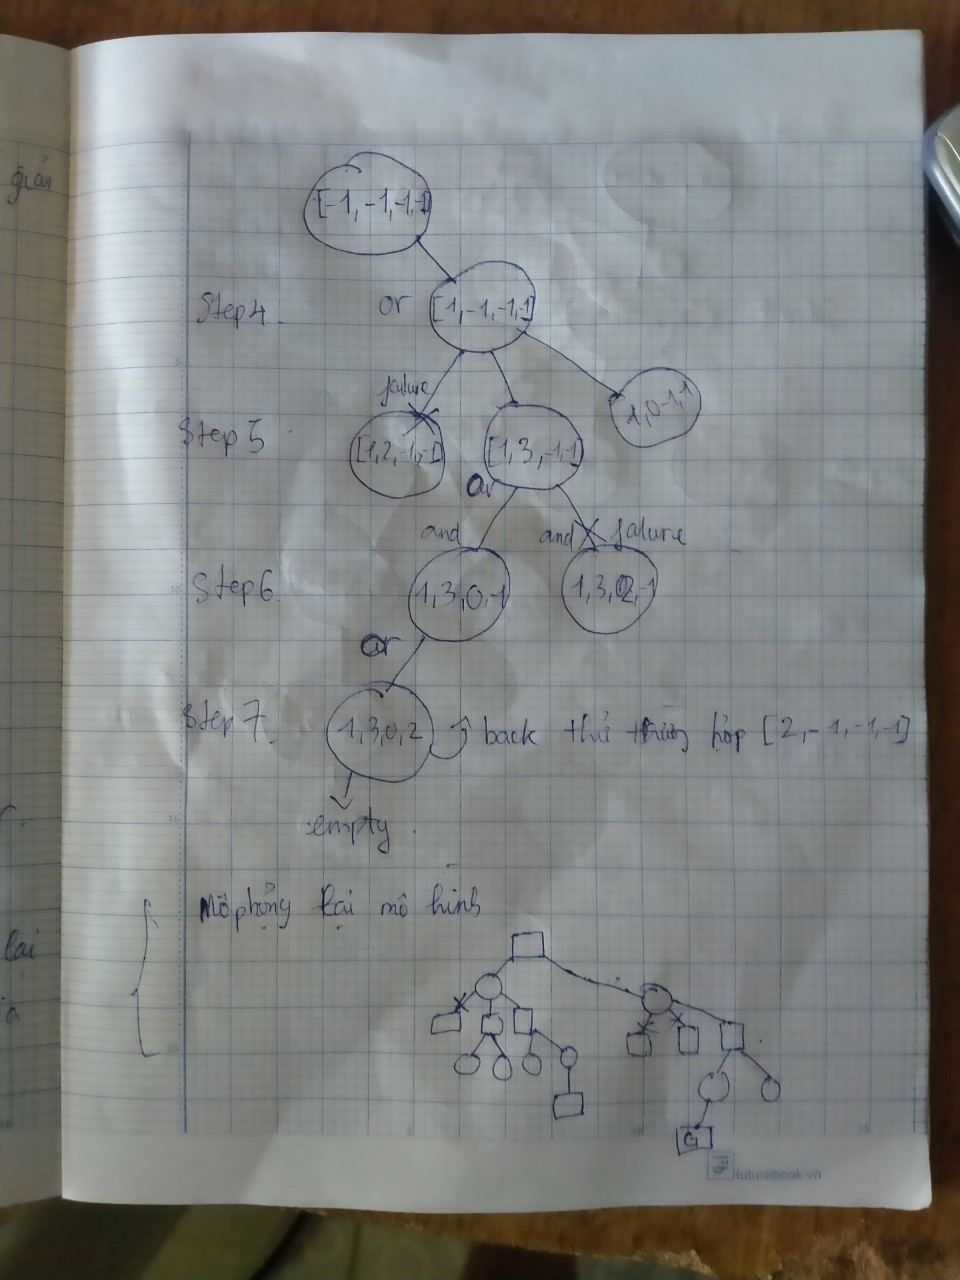 giải
[-1, -1, -1, -1]
Step 4. or [1, -1, -1, -1]
failure
1, 0 -1, -1
Step 5 [1, 2, -1, -1] [1, 3, -1, -1]
or
and and failure
Step 6. 1, 3, 0, -1 1, 3, 2, -1
or
Step 7. 1, 3, 0, 2 back thử trường hợp [2, -1, -1, -1]
empty.
Mô phỏng lại mô hình
lại
G
futurebook.vn